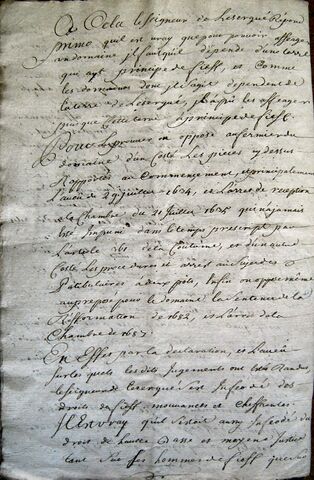 A Cela le seigneur de Lesergué Répond
primo quil est vray que pour pouvoir affeager
un domaine il faut quil dépende d'une terre
qui ayt principe de fieff, et comme
les domaines dont il s'agit dependent de
la terre de Lesergué, il a pu les affeager
puisque cette terre a principe de fieff.
Pour le prouver on oppose au fermier du
domaine d'un Costé Les pieces cydessus
Rapportées au Commencement, et principalement
L'aveu du 29 juillet 1634, et L'arrest de reception
de la Chambre du 21 Juillet 1635 qui n'a jamais
esté Impuni dans le temps prescript par
L'article 361 de la Coutume, et d'un autre
Costé Les procedures et arrest au sujet des
Patibulaires a deux pots, Enfin on rapporte mesme
au prepose pour le domaine La Sentence de la
Refformation de 1682, et L'arrest de la
Chambre de 1687.
En Effet par la declaration, et L'aveu
sur les quels les dits Jugements ont esté Rendus
le seigneur de Lesergué s'est Inféodé des
droits de fieff, mouvances et cheffrentes
Il est vray qu'il s'estoit aussy Inféodé du
droit de haute Basse et moyenne Justice
tant sur ses hommes de fieff que sur